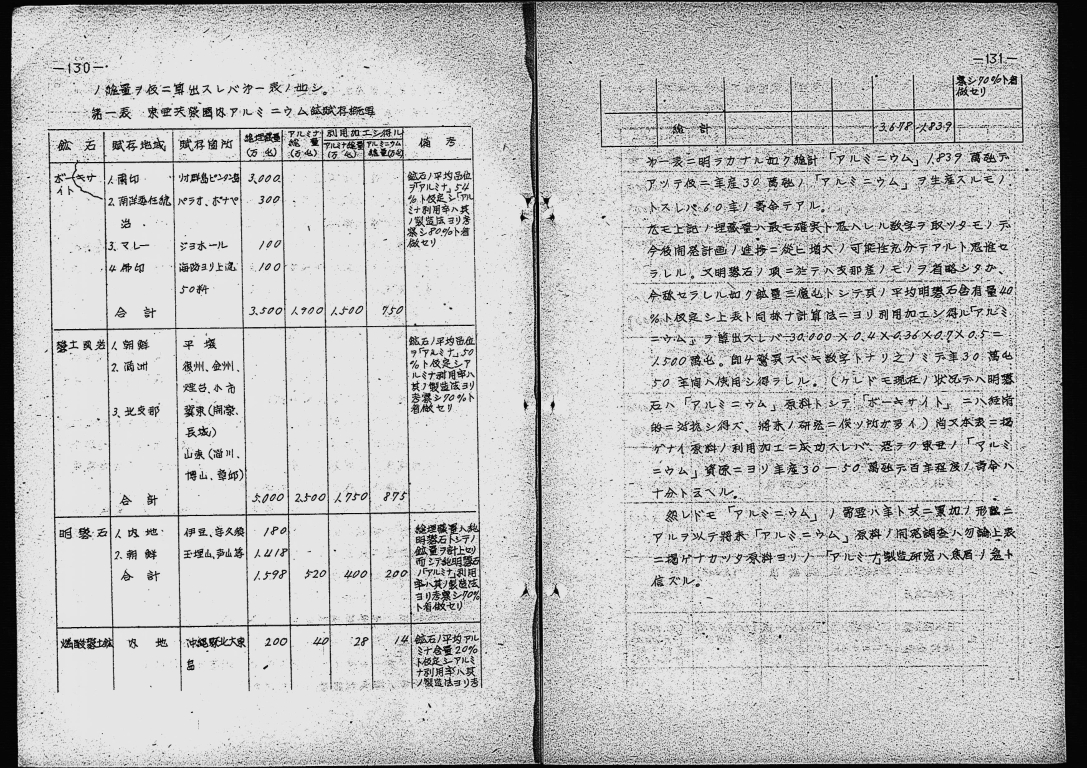 —130—
ノ鉱量ヲ仮ニ算出スレバ第一表ノ如シ。
第一表 東亜共栄圏内アルミニウム鉱賦存概要
鉱石 賦存地域 賦存箇所 総埋蔵量(万瓲) アルミナ総量(万瓲) 利用加工シ得ル アルミナ総量(万瓲) アルミニウム総量(万瓲) 備考
ボーキサイト
1. 蘭印 リオ群島ビンタン島 3,000
2. 南洋委任統治 パラオ、ポナペ 300
3. マレー ジョホール 100
4. 佛印 海防ヨリ上流50粁 100
合計 3,500 1,900 1,500 750
鉱石ノ平均品位
ヲ「アルミナ」54
%ト仮定シ「アル
ミナ利用率ハ其
ノ製造法ヨリ考
察シ80%ト看
做セリ
礬土頁岩
1. 朝鮮 平壌
2. 満洲 復州、金州、
煙台、小市
3. 北支那 冀東(開灤、
長城)
山東(淄川、
博山、章邱)
合計 5,000 2,500 1,750 875
鉱石ノ平均品位
ヲ「アルミナ」50
%ト仮定シア
ルミナ利用率ハ
其ノ製造法ヨリ
考察シ70%ト
看做セリ
明礬石
1. 内地 伊豆、宇久須 180
2. 朝鮮 玉埋山、声山等 1,418
合計 1,598 520 400 200
総埋蔵量ハ純
明礬石トシテノ
鉱量ヲ計上セリ
而シテ純明礬石
ノ「アルミナ」利用
率ハ其ノ製造法
ヨリ考察シ70%
ト看做セリ
燐酸礬土鉱 内地 沖縄県北大東島 200 40 28 14
鉱石ノ平均アル
ミナ含量20%
ト仮定シアルミ
ナ利用率ハ其
ノ製造法ヨリ考
—131—
察シ70%ト看
做セリ
総計 3,678 1,839
第一表ニ明ラカナル如ク総計「アルミニウム」1,839萬瓲デ
アツテ仮ニ年産30萬瓲ノ「アルミニウム」ヲ生産スルモノ
トスレバ60年ノ寿命デアル。
尤モ上記ノ埋蔵量ハ最モ確実ト思ハレル数字ヲ取ツタモノデ
今後開発計画ノ進捗ニ從ヒ増大ノ可能性充分デアルト思惟セ
ラレル。又明礬石ノ項ニ於テハ支那産ノモノヲ省略シタガ、
今稼セラレル如ク鉱量三億瓲トシテ其ノ平均明礬石含有量40
%ト仮定シ上表ト同様ナ計算法ニヨリ利用加工シ得ル「アルミ
ニウム」ヲ算出スレバ30,000×0.4×0.36×0.7×0.5=
1,500萬瓲。即チ驚異スベキ数字トナリ之ノミデ年30萬瓲
50年間ハ使用シ得ラレル。(ケレドモ現在ノ状況デハ明礬
石ハ「アルミニウム」原料トシテ「ボーキサイト」ニハ経済
的ニ対抗シ得ズ、将来ノ研究ニ俟ツ所ガ多イ)尚又本表ニ掲
ゲナイ原料ノ利用加工ニ成功スレバ、恐ラク東亜ノ「アルミ
ニウム」資源ニヨリ年産30—50萬瓲デ百年程度ノ寿命ハ
十分ト云ヘル。
然レドモ「アルミニウム」ノ需要ハ年ト共ニ累加ノ形勢ニ
アルヲ以テ将来「アルミニウム」原料ノ開発調査ハ勿論上表
ニ掲ゲナカッタ原料ヨリノ「アルミナ」製造研究ハ焦眉ノ急ト
信ズル。